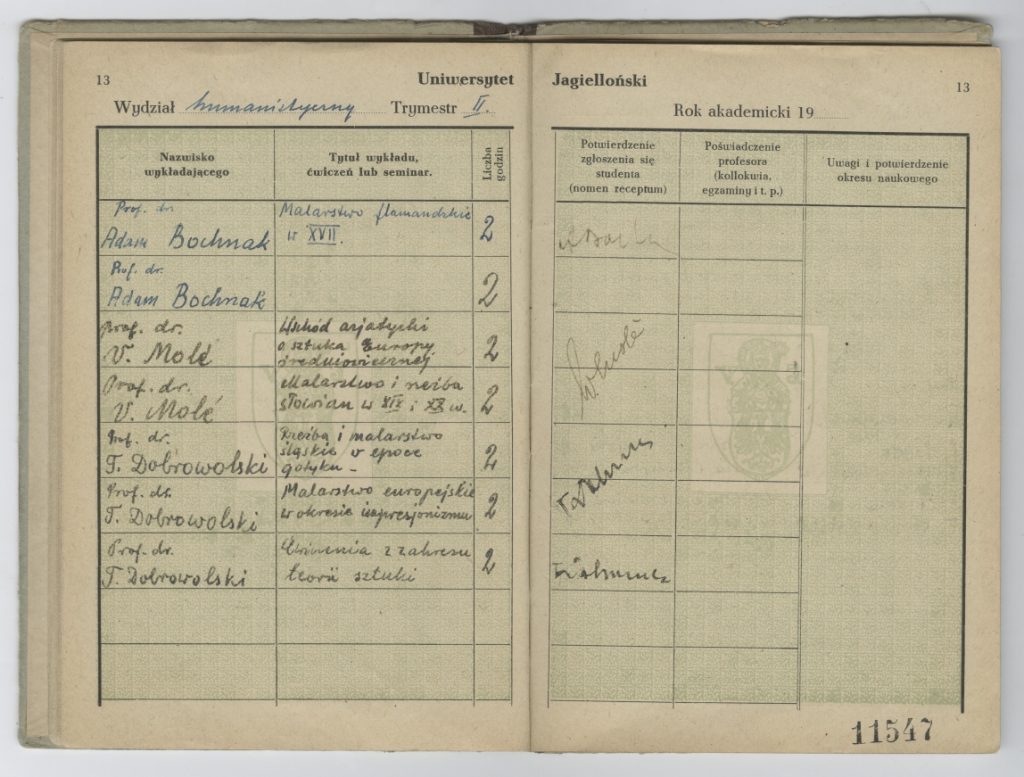 13
Uniwersytet Jagielloński
13
Wydział humanistyczny Trymestr II.
Rok akademicki 19
Nazwisko wykładającego
Tytuł wykładu, ćwiczeń lub seminar.
Liczba godzin
Potwierdzenie zgłoszenia się studenta (nomen receptum)
Poświadczenie profesora (kollokwia, egzaminy i t. p.)
Uwagi i potwierdzenie okresu naukowego
Prof. dr.
Adam Bochnak
Malarstwo flamandzkie
w XVII.
2
Prof. dr.
Adam Bochnak
2
Prof. dr.
V. Molè
Wschód azjatycki
a sztuka Europy
średniowiecznej
2
Prof. dr.
V. Molè
Malarstwo i rzeźba
słowian w XIX i XX w.
2
Prof. dr.
T. Dobrowolski
Rzeźba i malarstwo
śląskie w epoce
gotyku -
2
Prof. dr.
T. Dobrowolski
Malarstwo europejskie
w okresie impresjonizmu
2
Prof. dr.
T. Dobrowolski
Ćwiczenia z zakresu
teorii sztuki
2
11547